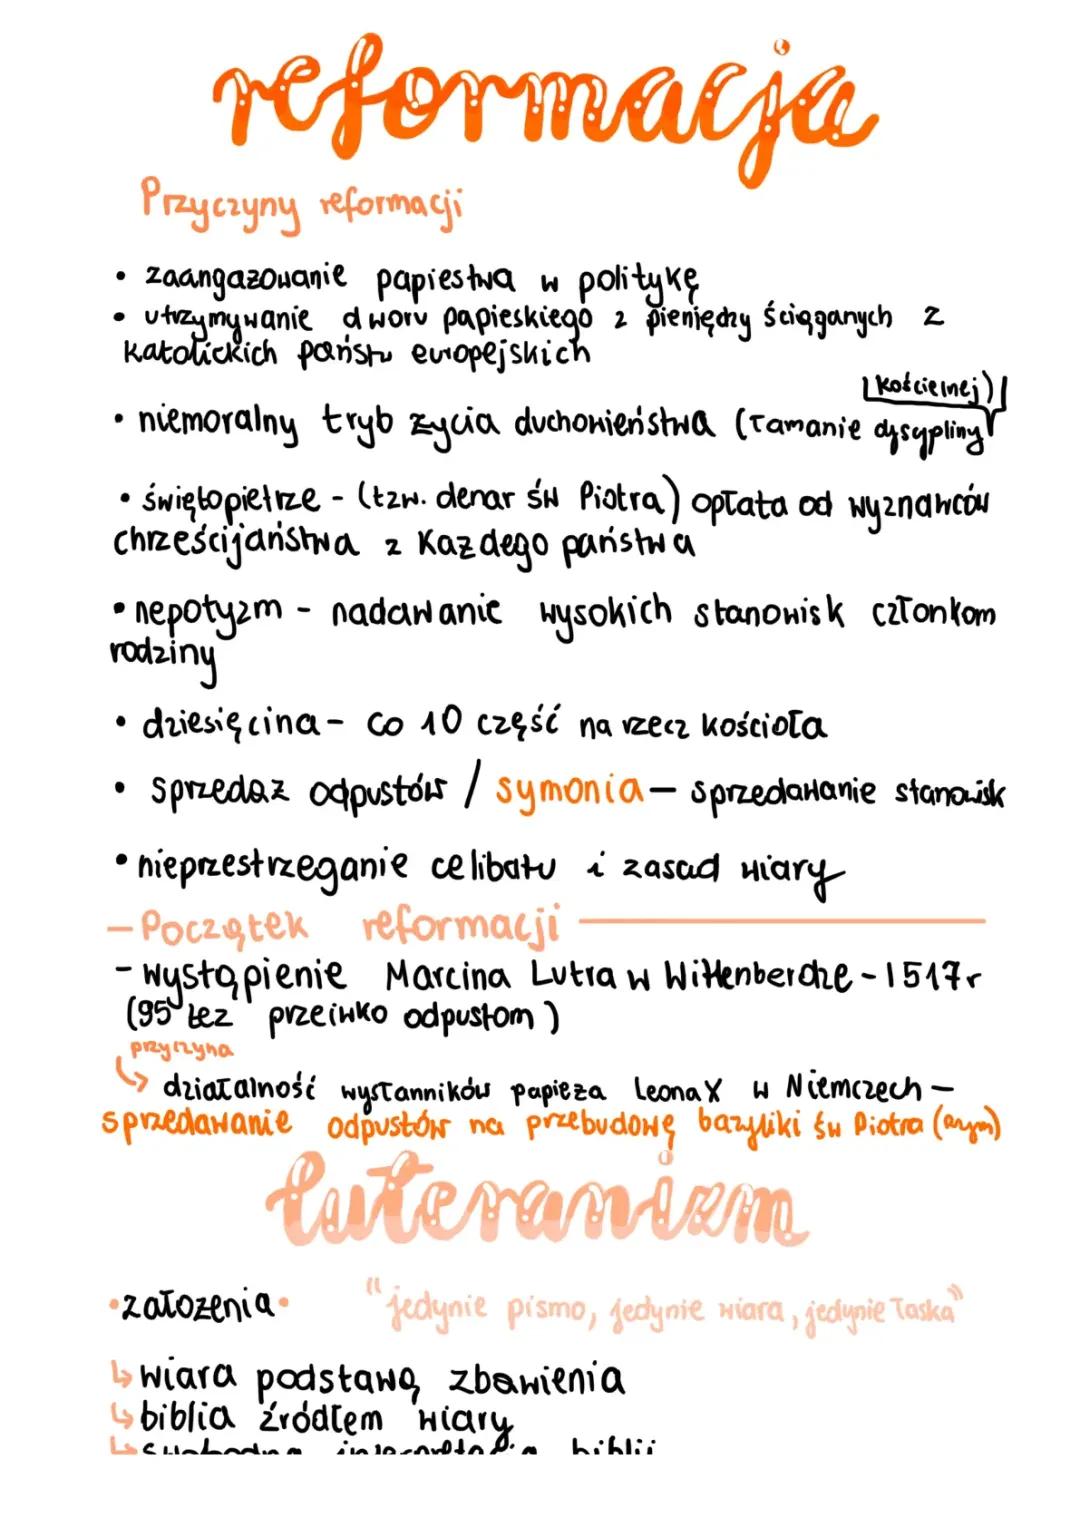 reformacja
Przyczyny reformacji
• zaangażowanie papiestwa w politykę
• utrzymywanie dworu papieskiego z pieniędzy ściąganych z
katolickich państw europejskich
kościelnej)
• niemoralny tryb życia duchowieństwa (łamanie dysypliny
• świętopietrze - (tzw. denar św Piotra) opłata od wyznawców
chrześcijaństwa z każdego państwa
• nepotyzm - nadawanie wysokich stanowisk członkom
rodziny
• dziesięcina - co 10 część na rzecz kościoła
• sprzedaż odpustów / symonia - sprzedawanie stanowisk
• nieprzestrzeganie celibatu i zasad wiary
- Początek reformacji
- wystąpienie Marcina Lutra w Wittenberdze - 1517r
(95 tez przeiwko odpustom)
przyczyna
↳ działalność wysłanników papieża Leona X w Niemczech -
sprzedawanie odpustów na przebudowę bazyliki św Piotra
luteranizm
• założenia • "jedynie pismo, jedynie wiara, jedynie łaska"
↳ wiara podstawą zbawienia
↳ biblia źródłem wiary
↳ swobodna interpretacja biblii